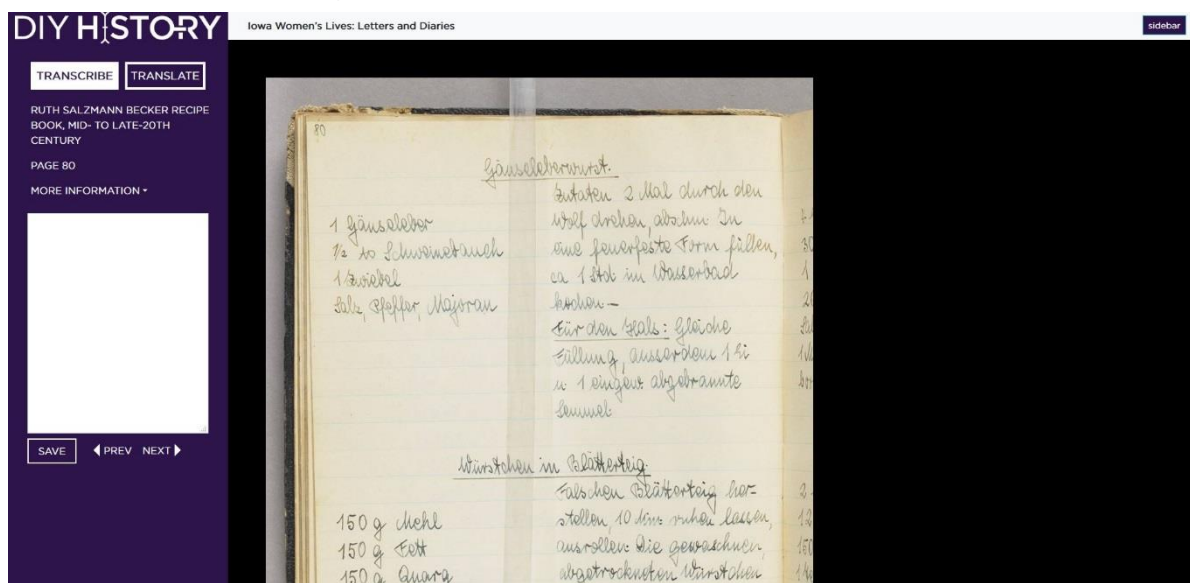 DIY HISTORY
Iowa Women's Lives: Letters and Diaries
sidebar
TRANSCRIBE
TRANSLATE
RUTH SALZMANN BECKER RECIPE
BOOK, MID- TO LATE-20TH
CENTURY
PAGE 80
MORE INFORMATION
SAVE
PREV NEXT
80
Gänseleberwurst.
1 Gänseleber
½ Schweinebauch
1 Zwiebel
Salz, Pfeffer, Majoran
Zutaten 2 Mal durch den
Wolf drehen, abschm. In
eine feuerfeste Form füllen,
ca 1 Std im Wasserbad
kochen –
Für den Hals: Gleiche
Füllung, ausserdem 1 Ei
u. 1 eingew. abgebrannte
Semmel.
Würstchen in Blätterteig.
150 g Mehl
150 g Fett
150 g Quarg
Falschen Blätterteig her=
stellen, 10 Min. ruhen lassen,
ausrollen. Die gewaschnen,
abgetrockneten Würstchen